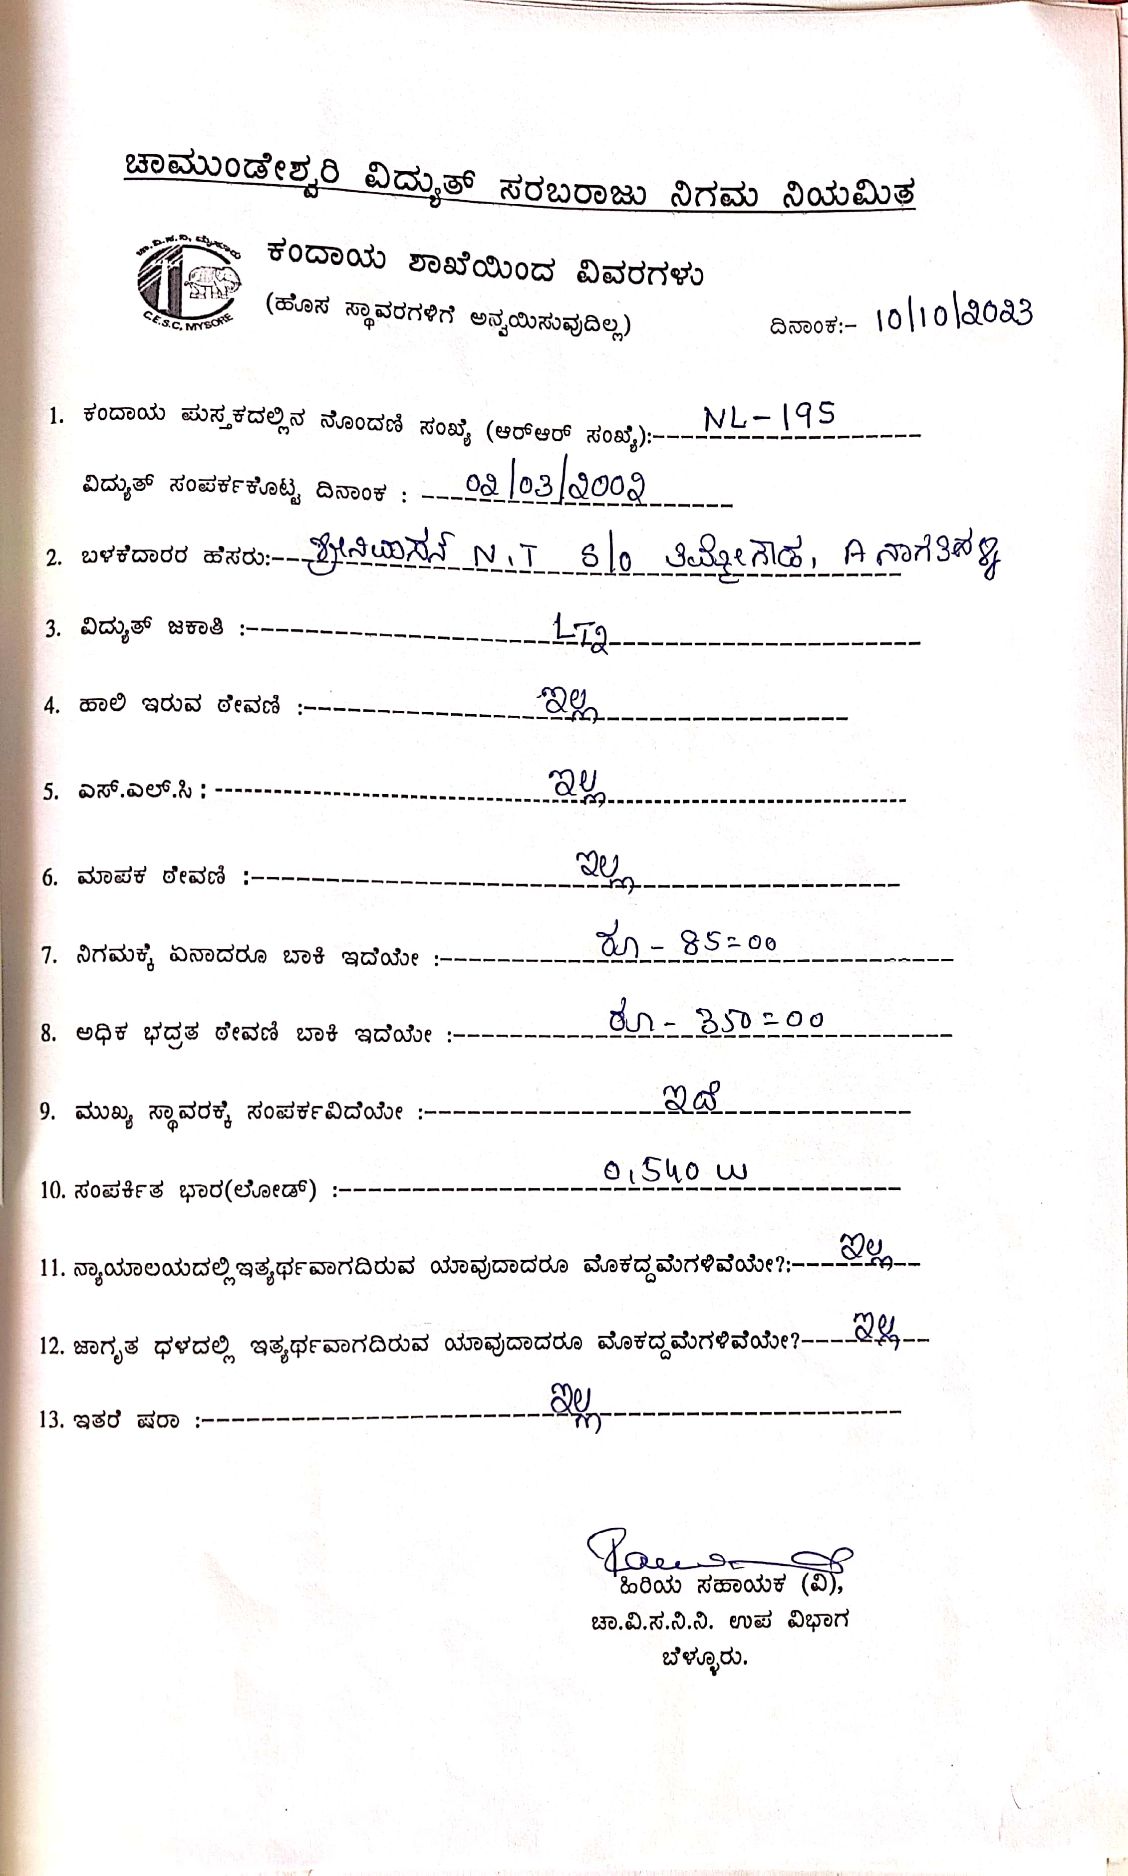 ಚಾಮುಂಡೇಶ್ವರಿ ವಿದ್ಯುತ್ ಸರಬರಾಜು ನಿಗಮ ನಿಯಮಿತ
ಚಾ.ವಿ.ಸ.ನಿ. ಮೈಸೂರು
C.E.S.C, MYSORE
ಕಂದಾಯ ಶಾಖೆಯಿಂದ ವಿವರಗಳು
(ಹೊಸ ಸ್ಥಾವರಗಳಿಗೆ ಅನ್ವಯಿಸುವುದಿಲ್ಲ)
ದಿನಾಂಕ:- 10/10/2023
1. ಕಂದಾಯ ಪುಸ್ತಕದಲ್ಲಿನ ನೊಂದಣಿ ಸಂಖ್ಯೆ (ಆರ್‌ಆರ್ ಸಂಖ್ಯೆ):- NL-195
ವಿದ್ಯುತ್ ಸಂಪರ್ಕಕೊಟ್ಟ ದಿನಾಂಕ : 02/03/2002
2. ಬಳಕೆದಾರರ ಹೆಸರು:- ಶ್ರೀನಿವಾಸನ್ N.T S/o ತಿಮ್ಮೇಗೌಡ, A ನಾಗತಿಹಳ್ಳಿ
3. ವಿದ್ಯುತ್ ಜಕಾತಿ :- LT2
4. ಹಾಲಿ ಇರುವ ಠೇವಣಿ :- ಇಲ್ಲ
5. ಎಸ್.ಎಲ್.ಸಿ : ಇಲ್ಲ
6. ಮಾಪಕ ಠೇವಣಿ :- ಇಲ್ಲ
7. ನಿಗಮಕ್ಕೆ ಏನಾದರೂ ಬಾಕಿ ಇದೆಯೇ :- ರೂ - 85=00
8. ಅಧಿಕ ಭದ್ರತ ಠೇವಣಿ ಬಾಕಿ ಇದೆಯೇ :- ರೂ - 350=00
9. ಮುಖ್ಯ ಸ್ಥಾವರಕ್ಕೆ ಸಂಪರ್ಕವಿದೆಯೇ :- ಇದೆ
10. ಸಂಪರ್ಕಿತ ಭಾರ(ಲೋಡ್) :- 0.540 W
11. ನ್ಯಾಯಾಲಯದಲ್ಲಿಇತ್ಯರ್ಥವಾಗದಿರುವ ಯಾವುದಾದರೂ ಮೊಕದ್ದಮೆಗಳಿವೆಯೇ?:- ಇಲ್ಲ
12. ಜಾಗೃತ ಧಳದಲ್ಲಿ ಇತ್ಯರ್ಥವಾಗದಿರುವ ಯಾವುದಾದರೂ ಮೊಕದ್ದಮೆಗಳಿವೆಯೇ?- ಇಲ್ಲ
13. ಇತರೆ ಷರಾ :- ಇಲ್ಲ
ಹಿರಿಯ ಸಹಾಯಕ (ವಿ),
ಚಾ.ವಿ.ಸ.ನಿ.ನಿ. ಉಪ ವಿಭಾಗ
ಬೆಳ್ಳೂರು.